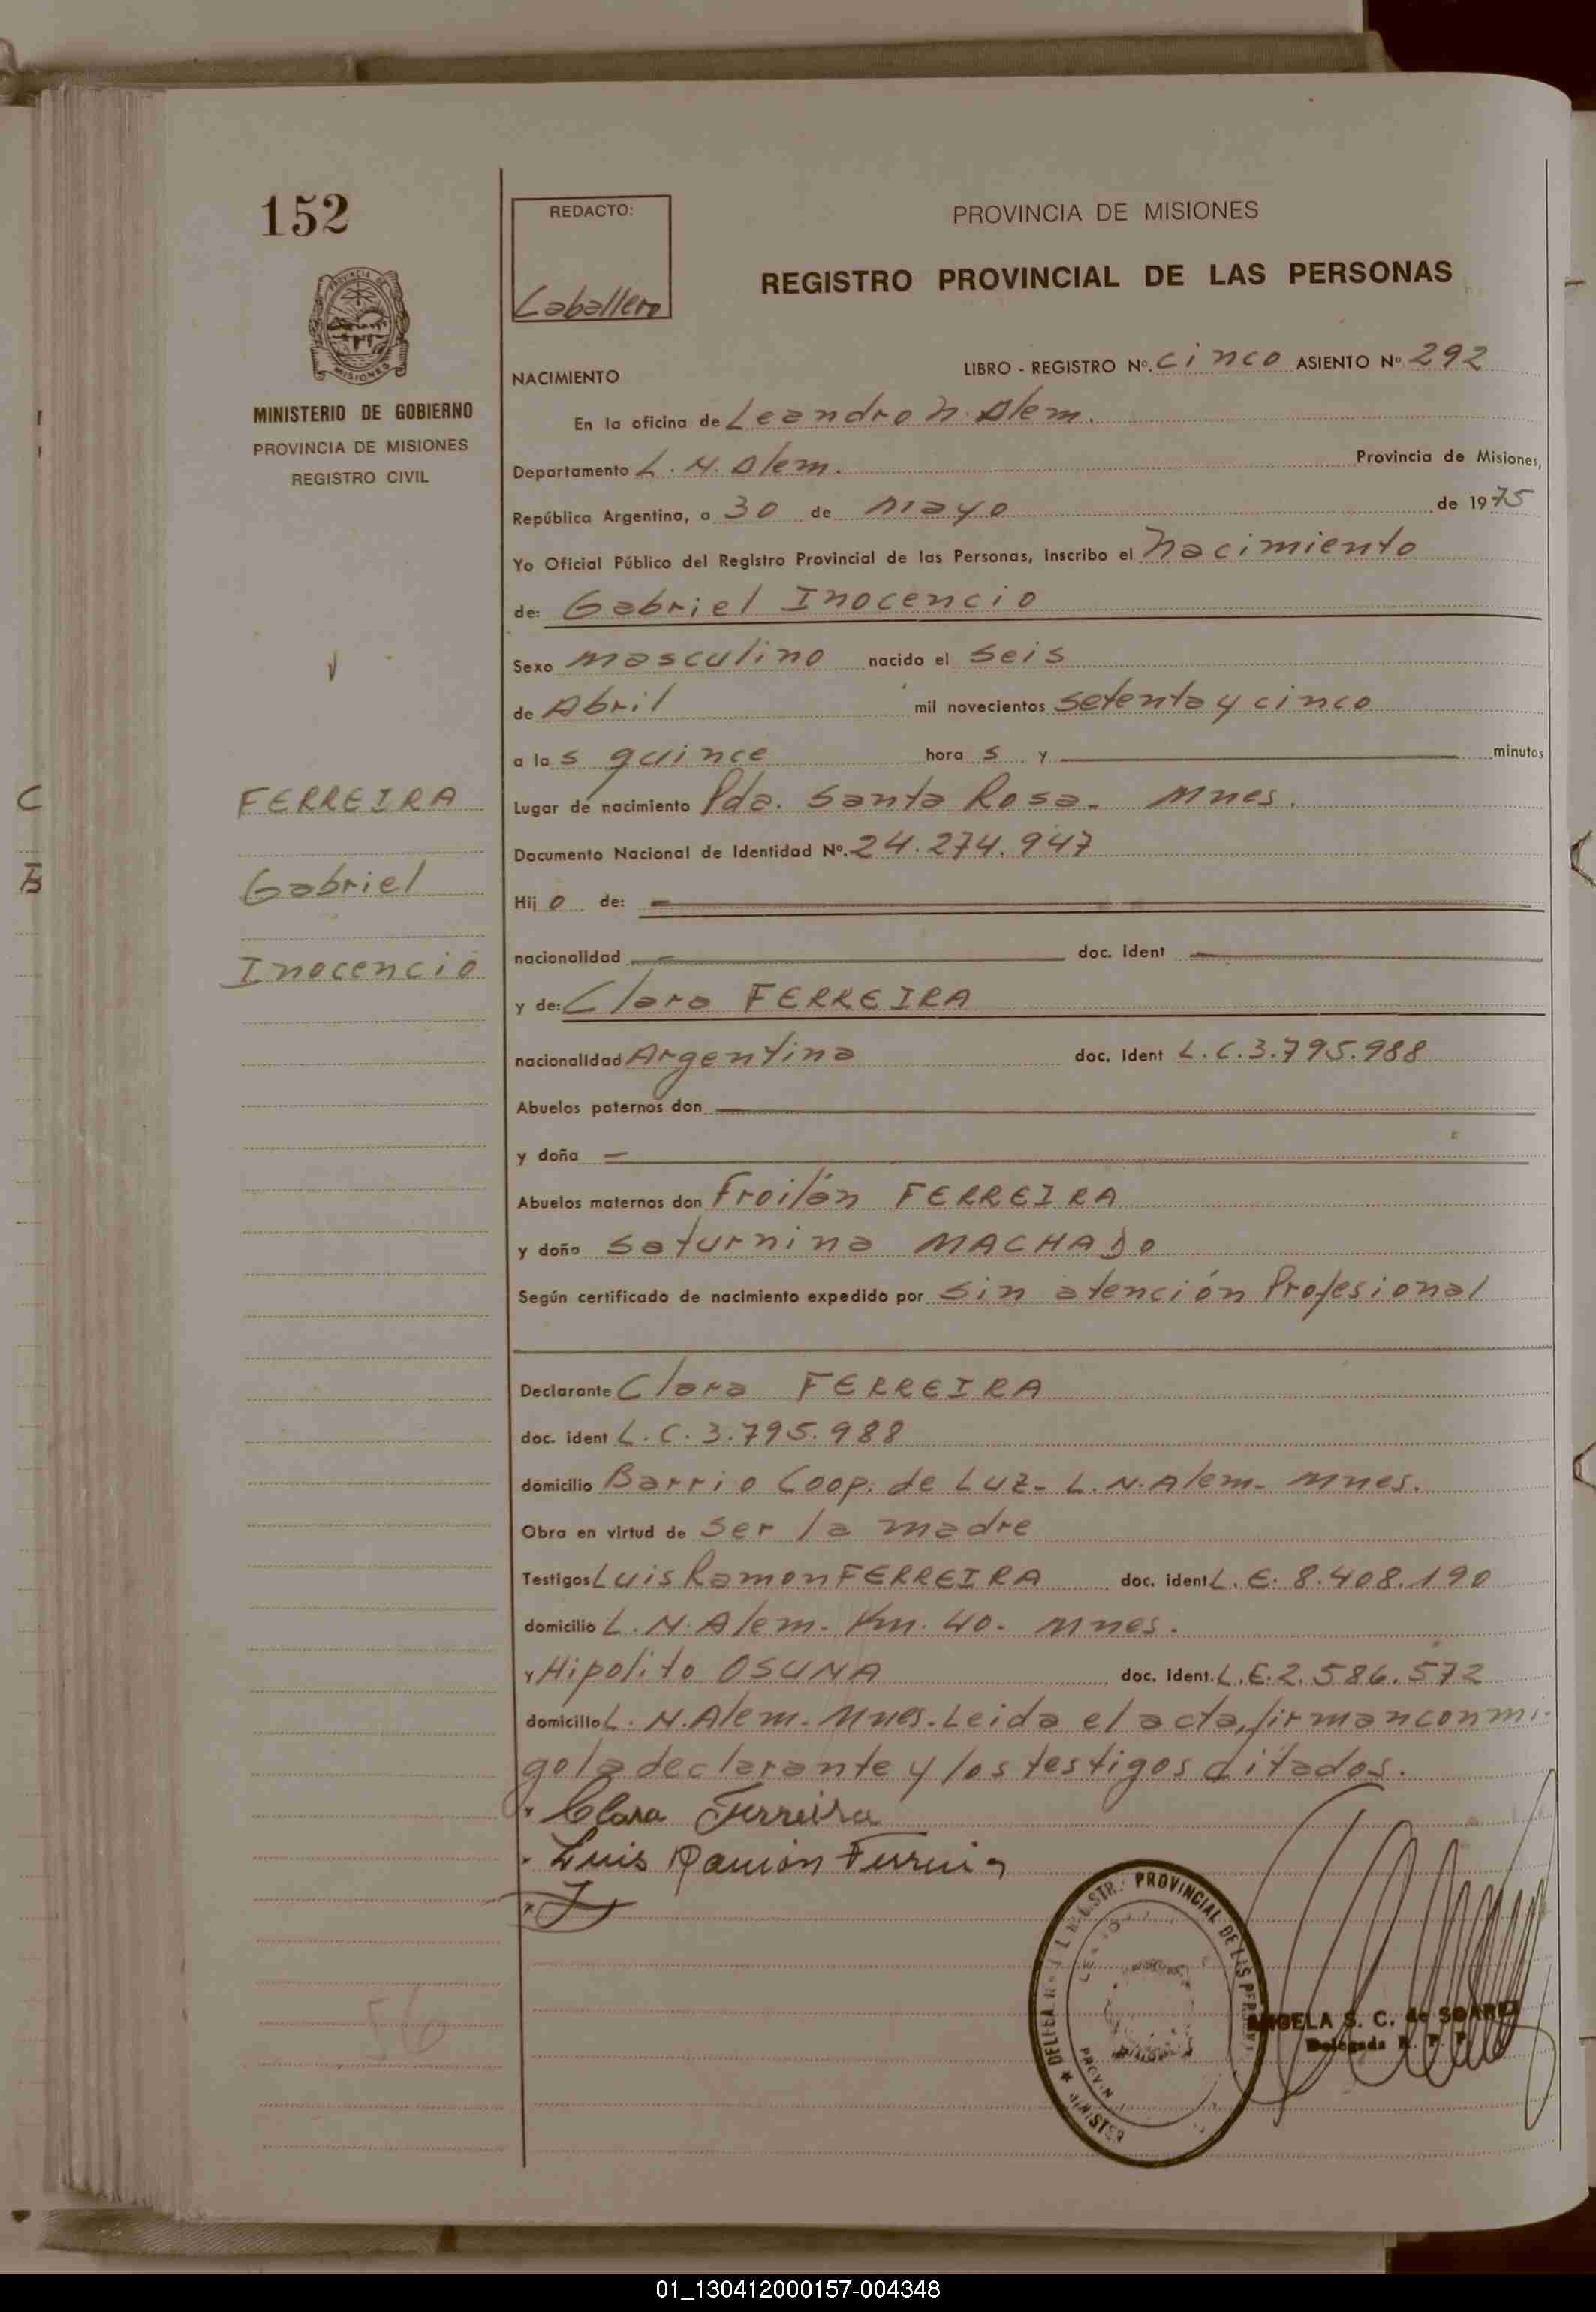 152
REDACTO:
Caballero
PROVINCIA DE MISIONES
REGISTRO PROVINCIAL DE LAS PERSONAS
PROVINCIA DE
MISIONES
MINISTERIO DE GOBIERNO
PROVINCIA DE MISIONES
REGISTRO CIVIL
C
B
FERREIRA
Gabriel
Inocencio
56
NACIMIENTO
LIBRO - REGISTRO Nº. cinco ASIENTO Nº 292
En la oficina de Leandro N. Alem.
Departamento L. N. Alem. Provincia de Misiones,
República Argentina, a 30 de mayo de 1975
Yo Oficial Público del Registro Provincial de las Personas, inscribo el Nacimiento
de: Gabriel Inocencio
Sexo masculino nacido el seis
de Abril mil novecientos setenta y cinco
a las quince horas y minutos
Lugar de nacimiento Pda. Santa Rosa. Mnes.
Documento Nacional de Identidad Nº. 24.274.947
Hijo de:
nacionalidad doc. ident
y de: Clara FERREIRA
nacionalidad Argentina doc. ident L.C.3.795.988
Abuelos paternos don
y doña
Abuelos maternos don Froilán FERREIRA
y doña Saturnina MACHADO
Según certificado de nacimiento expedido por sin atención Profesional
Declarante Clara FERREIRA
doc. ident L.C.3.795.988
domicilio Barrio Coop. de Luz- L.N.Alem- Mnes.
Obra en virtud de ser la madre
Testigos Luis Ramon FERREIRA doc. ident L.E. 8.408.190
domicilio L.N.Alem- Km. 40- Mnes.
y Hipolito OSUNA doc. ident. L.E.2.586.572
domicilio L.N.Alem- Mnes. Leida el acta, firman conmi-
go la declarante y los testigos citados.
Clara Ferreira
Luis Ramón Ferreira
PROVINCIAL DE LAS
ANGELA S. C. de SOAREZ
Delegada R. P. P.
01_130412000157-004348